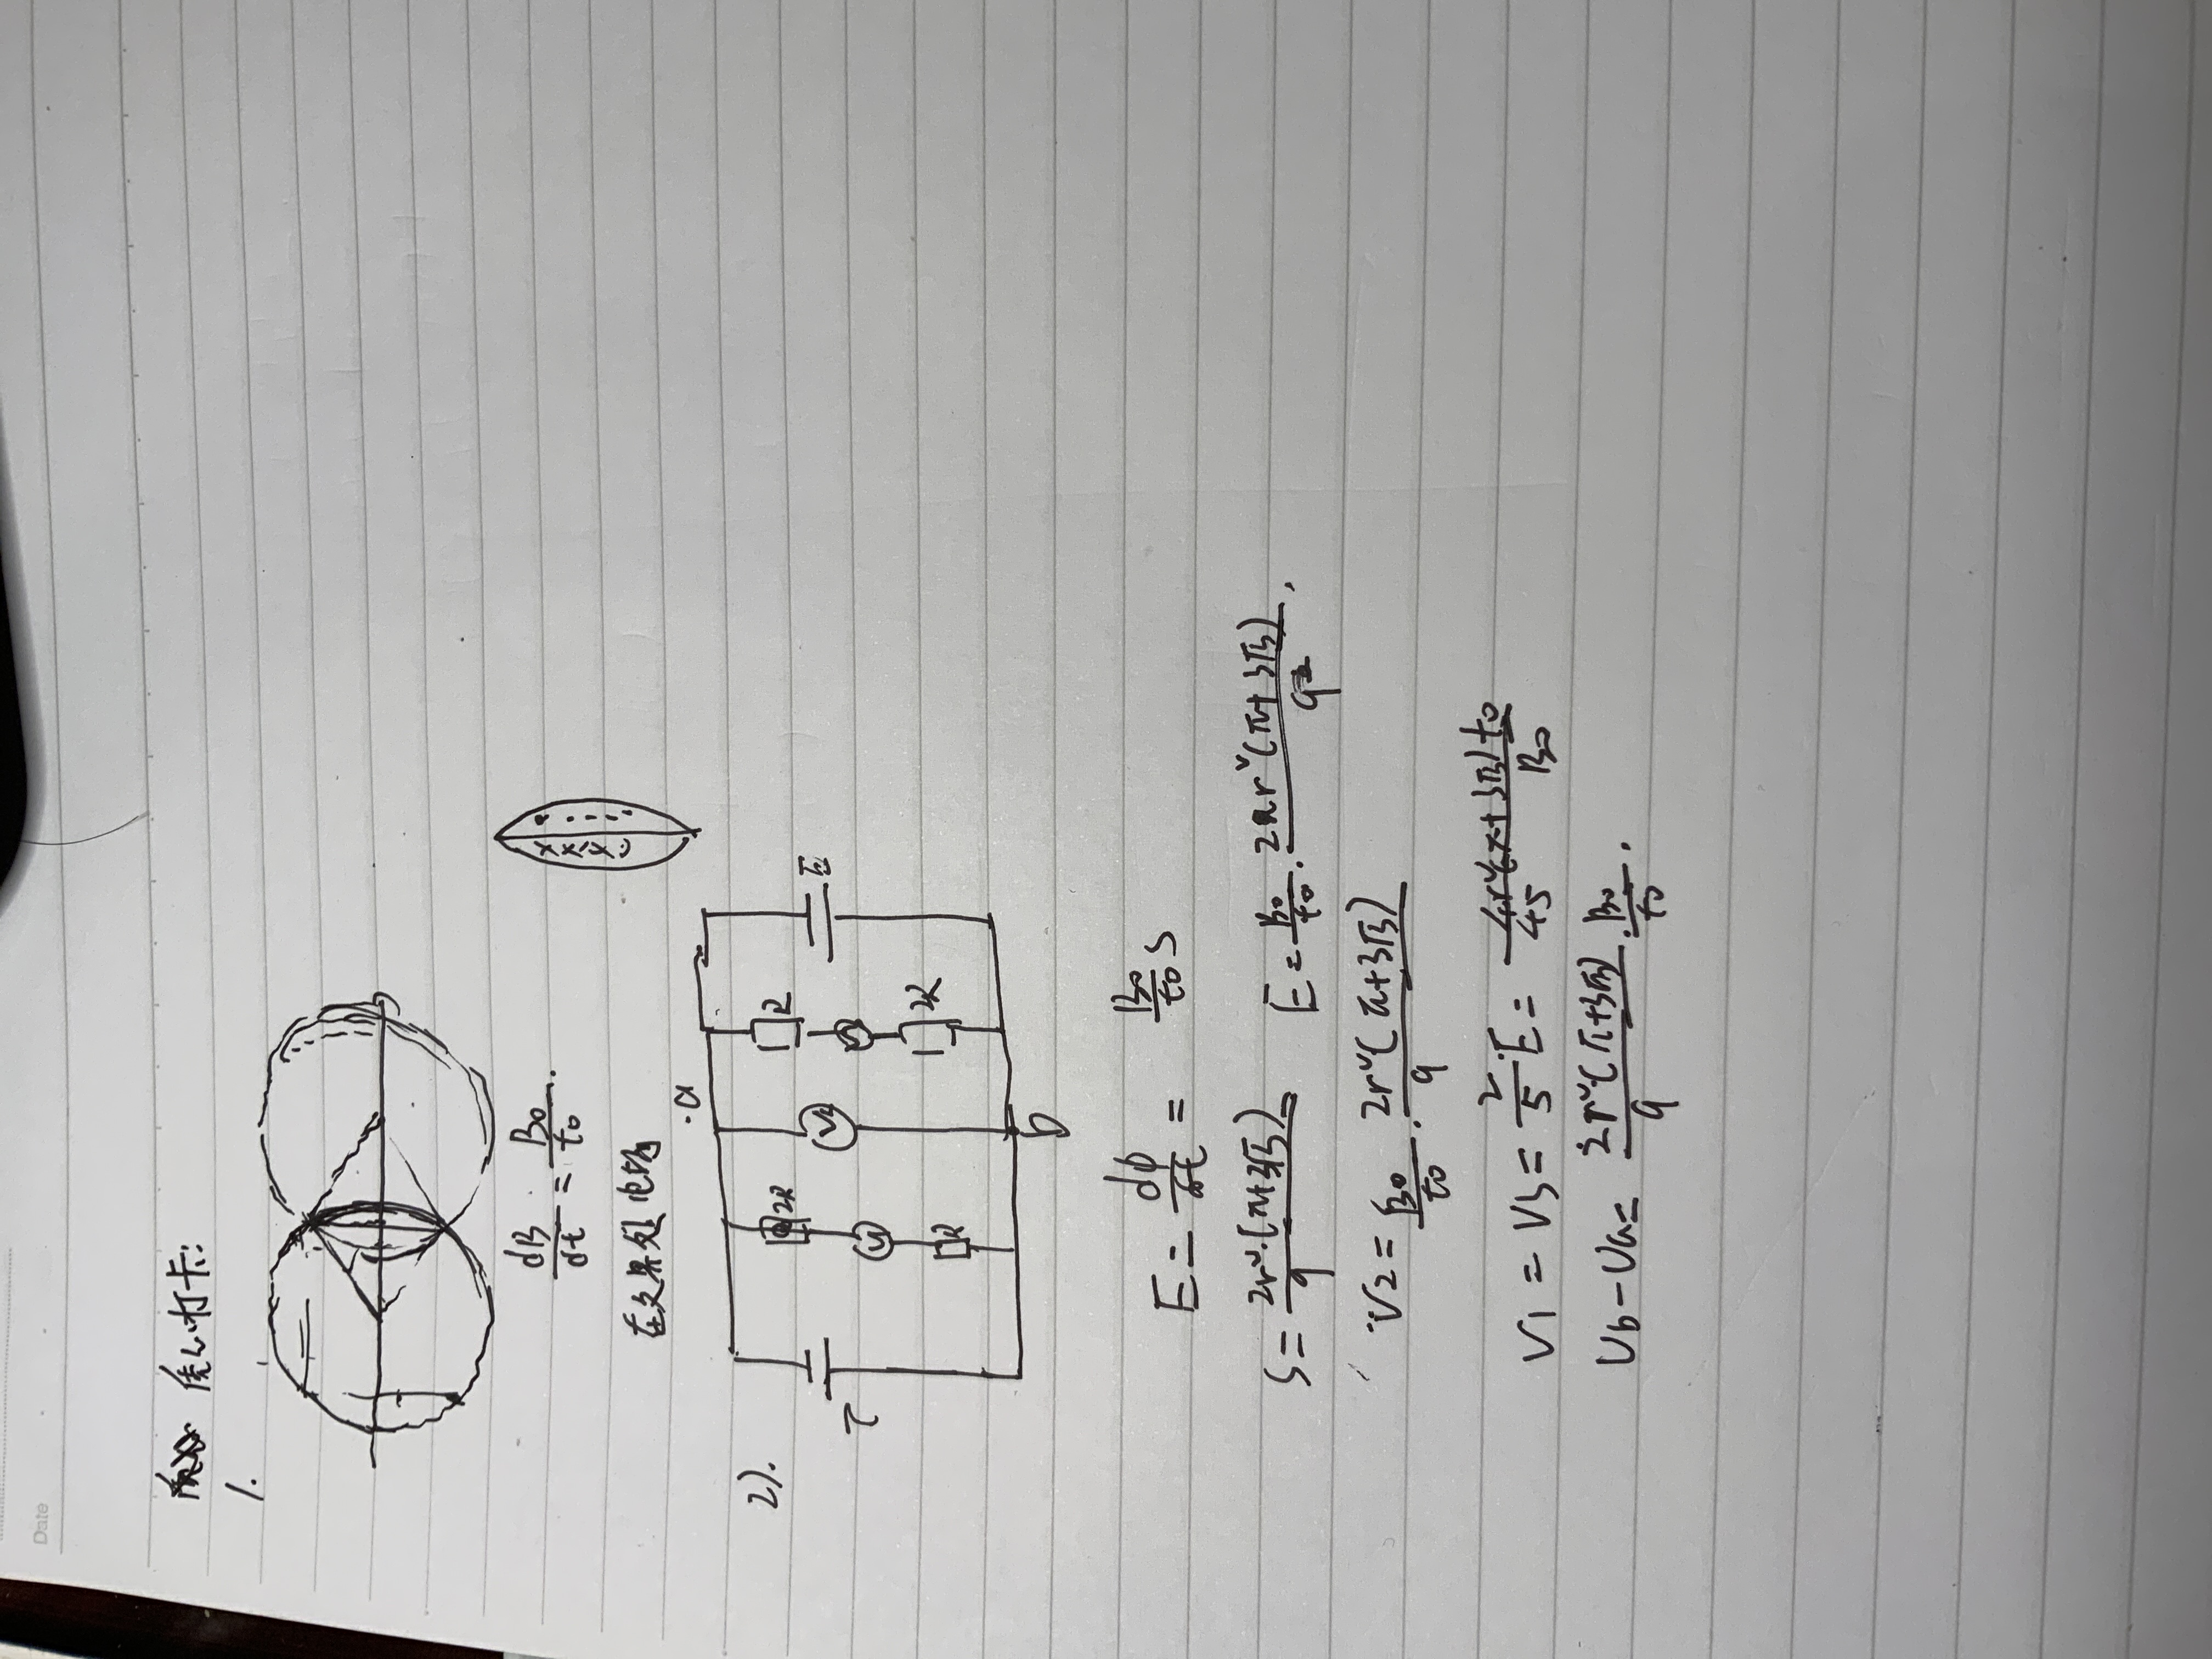 Date
打卡:
1.
dB/dt = B₀/t₀.
在交界处电场
.a
2).
2R
V₂
R
E
R
2R
b
E = dφ/dt = B₀/t₀ S
S = 2r²·(π+3√3)/9 E = B₀/t₀ · 2πr²(π+3√3)/9,
V2 = B₀/t₀ · 2r²(π+3√3)/9
V1 = V3 = 2/5·E = 4r²(π+3√3)t₀/45B₀
Ub-Ua = 2r²(π+3√3)/9 · B₀/t₀.